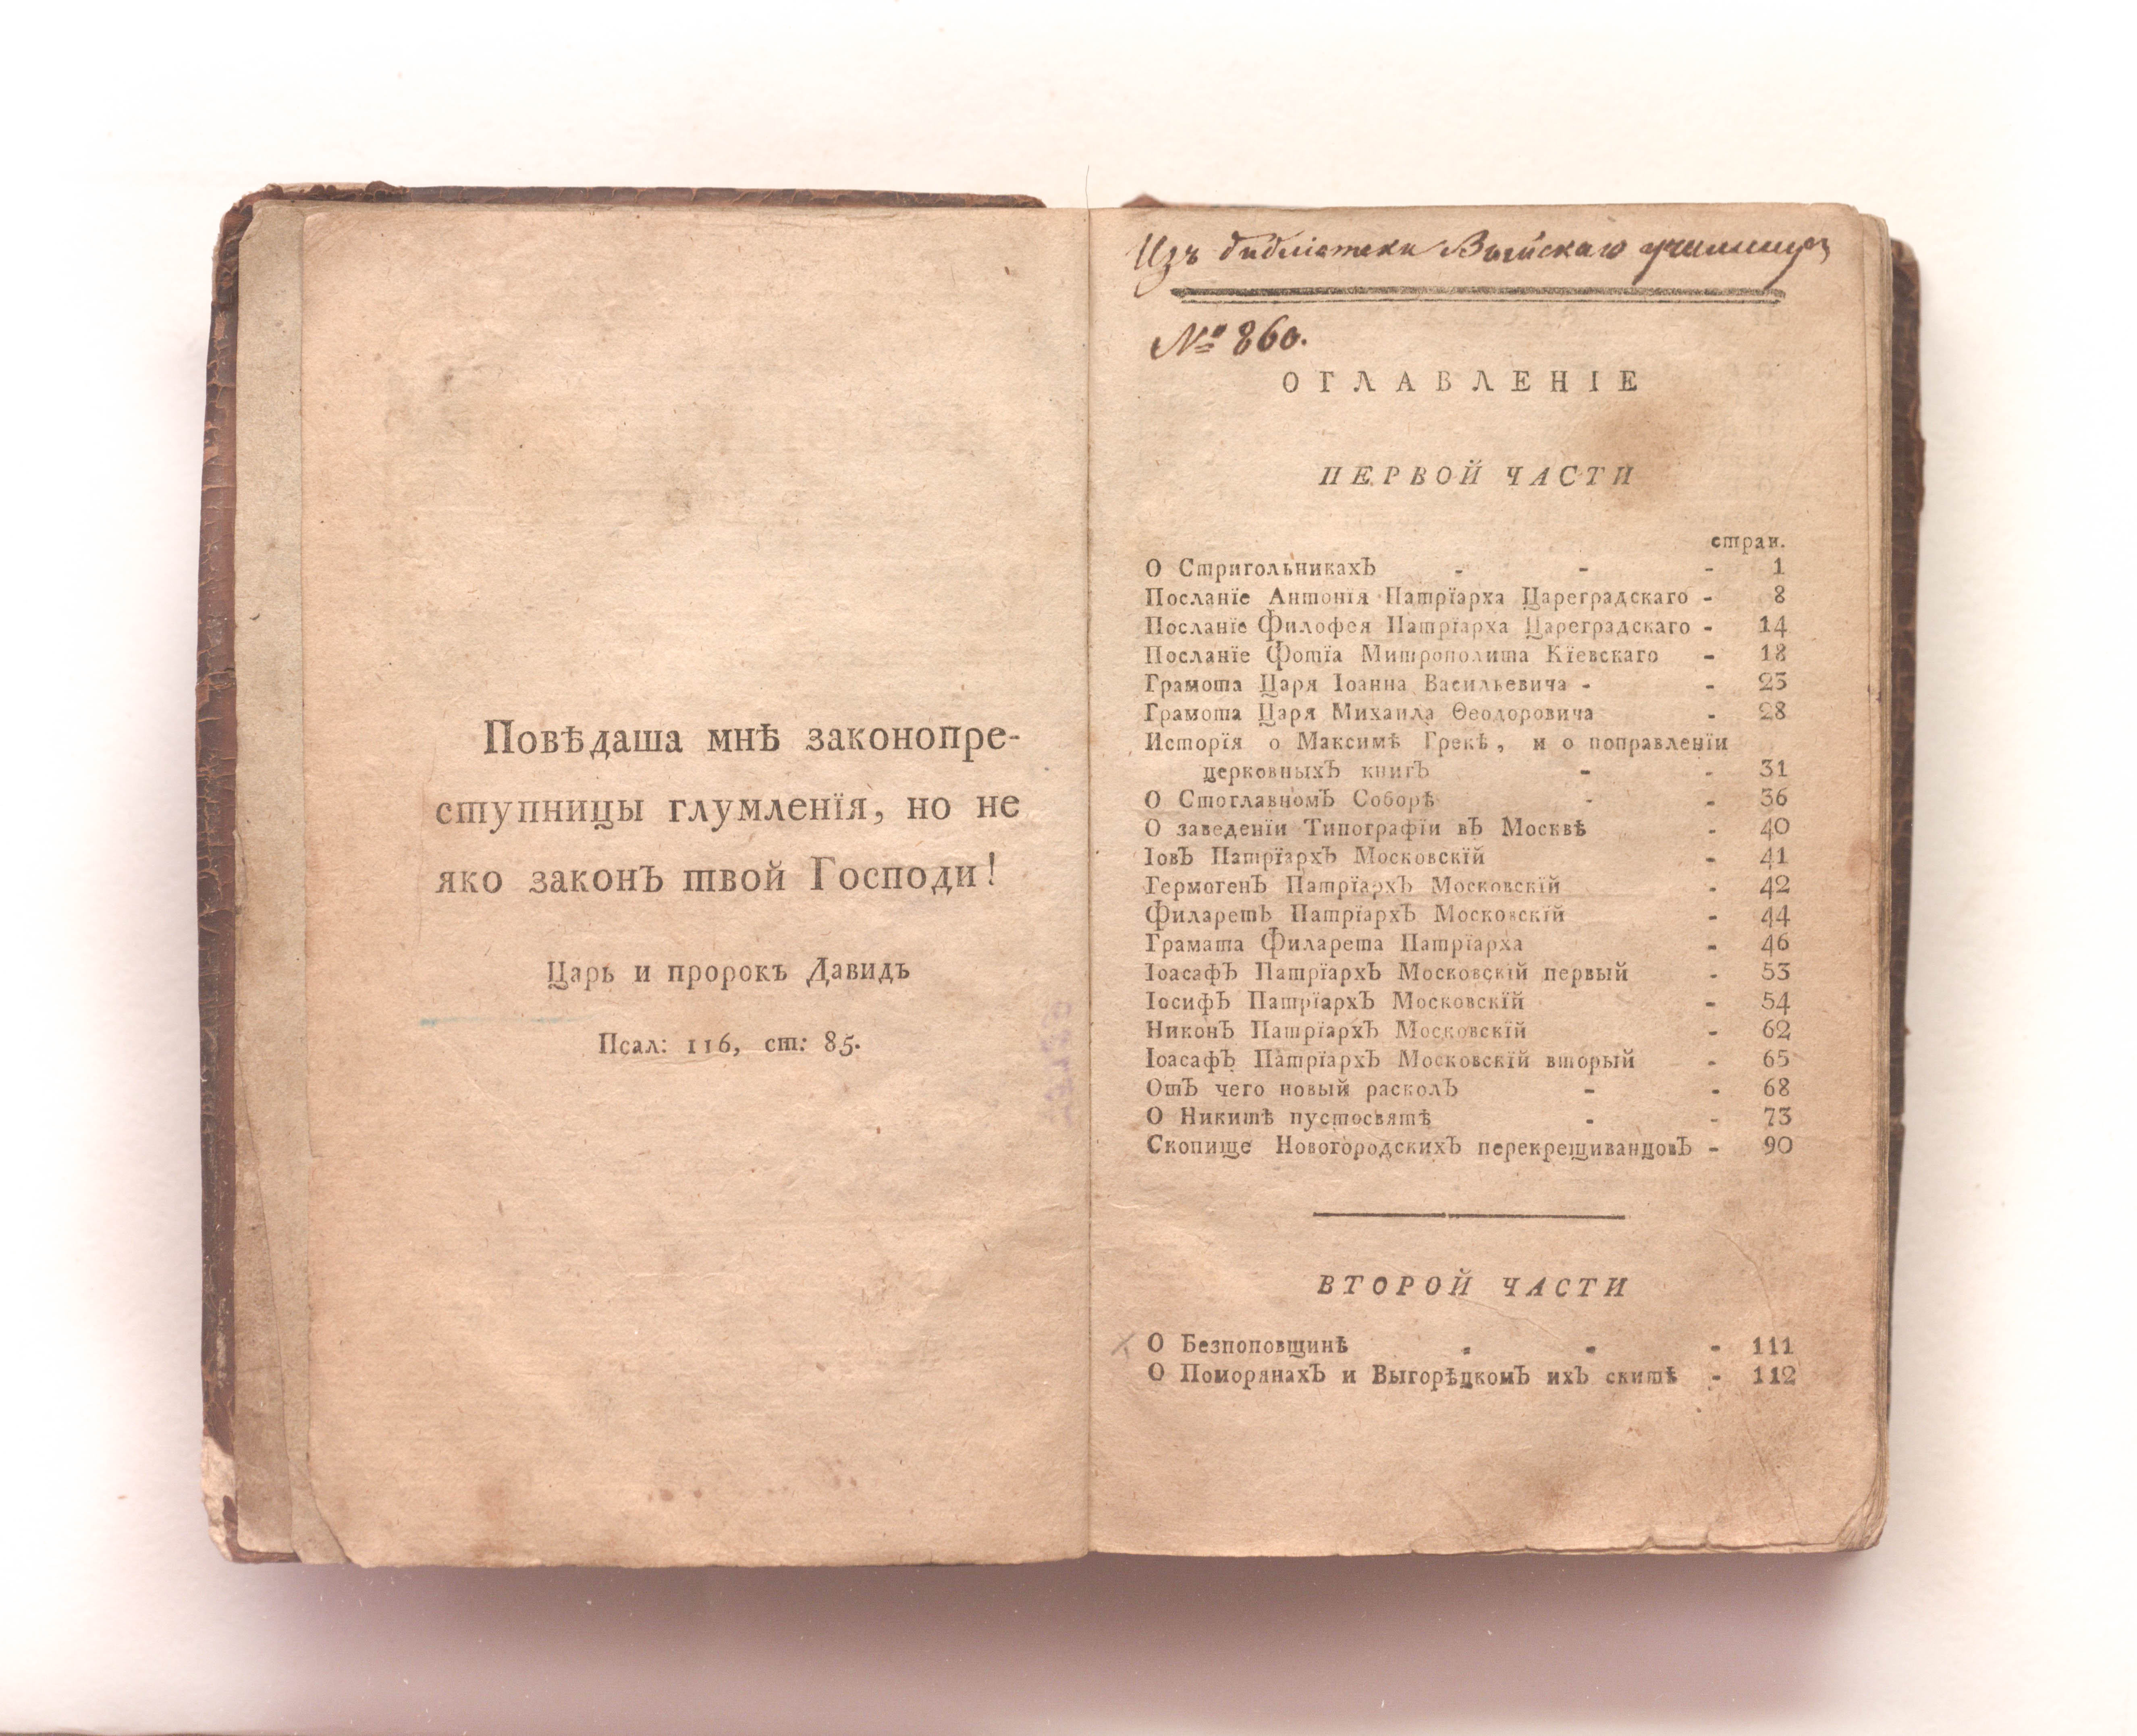 Повѣдаша мнѣ законопре-
ступницы глумленїя, но не
яко законЪ твой Господи!
Царь и пророкъ Давидъ
Псал: 116, ст: 85.
Изъ библіотеки Выйскаго училища
№ 860.
ОГЛАВЛЕНІЕ
ПЕРВОЙ ЧАСТИ
стран.
О СтригольникахЪ - - - 1
Посланїе Антонїя Патрїарха Цареградскаго - 8
Посланїе Филофея Патрїарха Цареградскаго - 14
Посланїе Фотїа Митрополита Кїевскаго - 18
Грамота Царя Іоанна Васильевича - - 23
Грамота Царя Михаила Ѳеодоровича - 28
Исторїя о Максимѣ Грекѣ, и о поправленїи
церковныхЪ книгЪ - - 31
О СтоглавномЪ Соборѣ - - 36
О заведенїи Типографїи вЪ Москвѣ - 40
ІовЪ ПатрїархЪ Московскїй - 41
ГермогенЪ ПатрїархЪ Московскїй - 42
ФиларетЪ ПатрїархЪ Московскїй - 44
Грамата Филарета Патрїарха - 46
ІоасафЪ ПатрїархЪ Московскїй первый - 53
ІосифЪ ПатрїархЪ Московскїй - 54
НиконЪ ПатрїархЪ Московскїй - 62
ІоасафЪ ПатрїархЪ Московскїй вторый - 65
ОтЪ чего новый расколЪ - - 68
О Никитѣ пустосвятѣ - - 73
Скопище НовогородскихЪ перекрещиванцовЪ - 90
ВТОРОЙ ЧАСТИ
О Безпоповщинѣ - - - 111
О ПоморянахЪ и ВыгорѣцкомЪ ихЪ скитѣ - 112